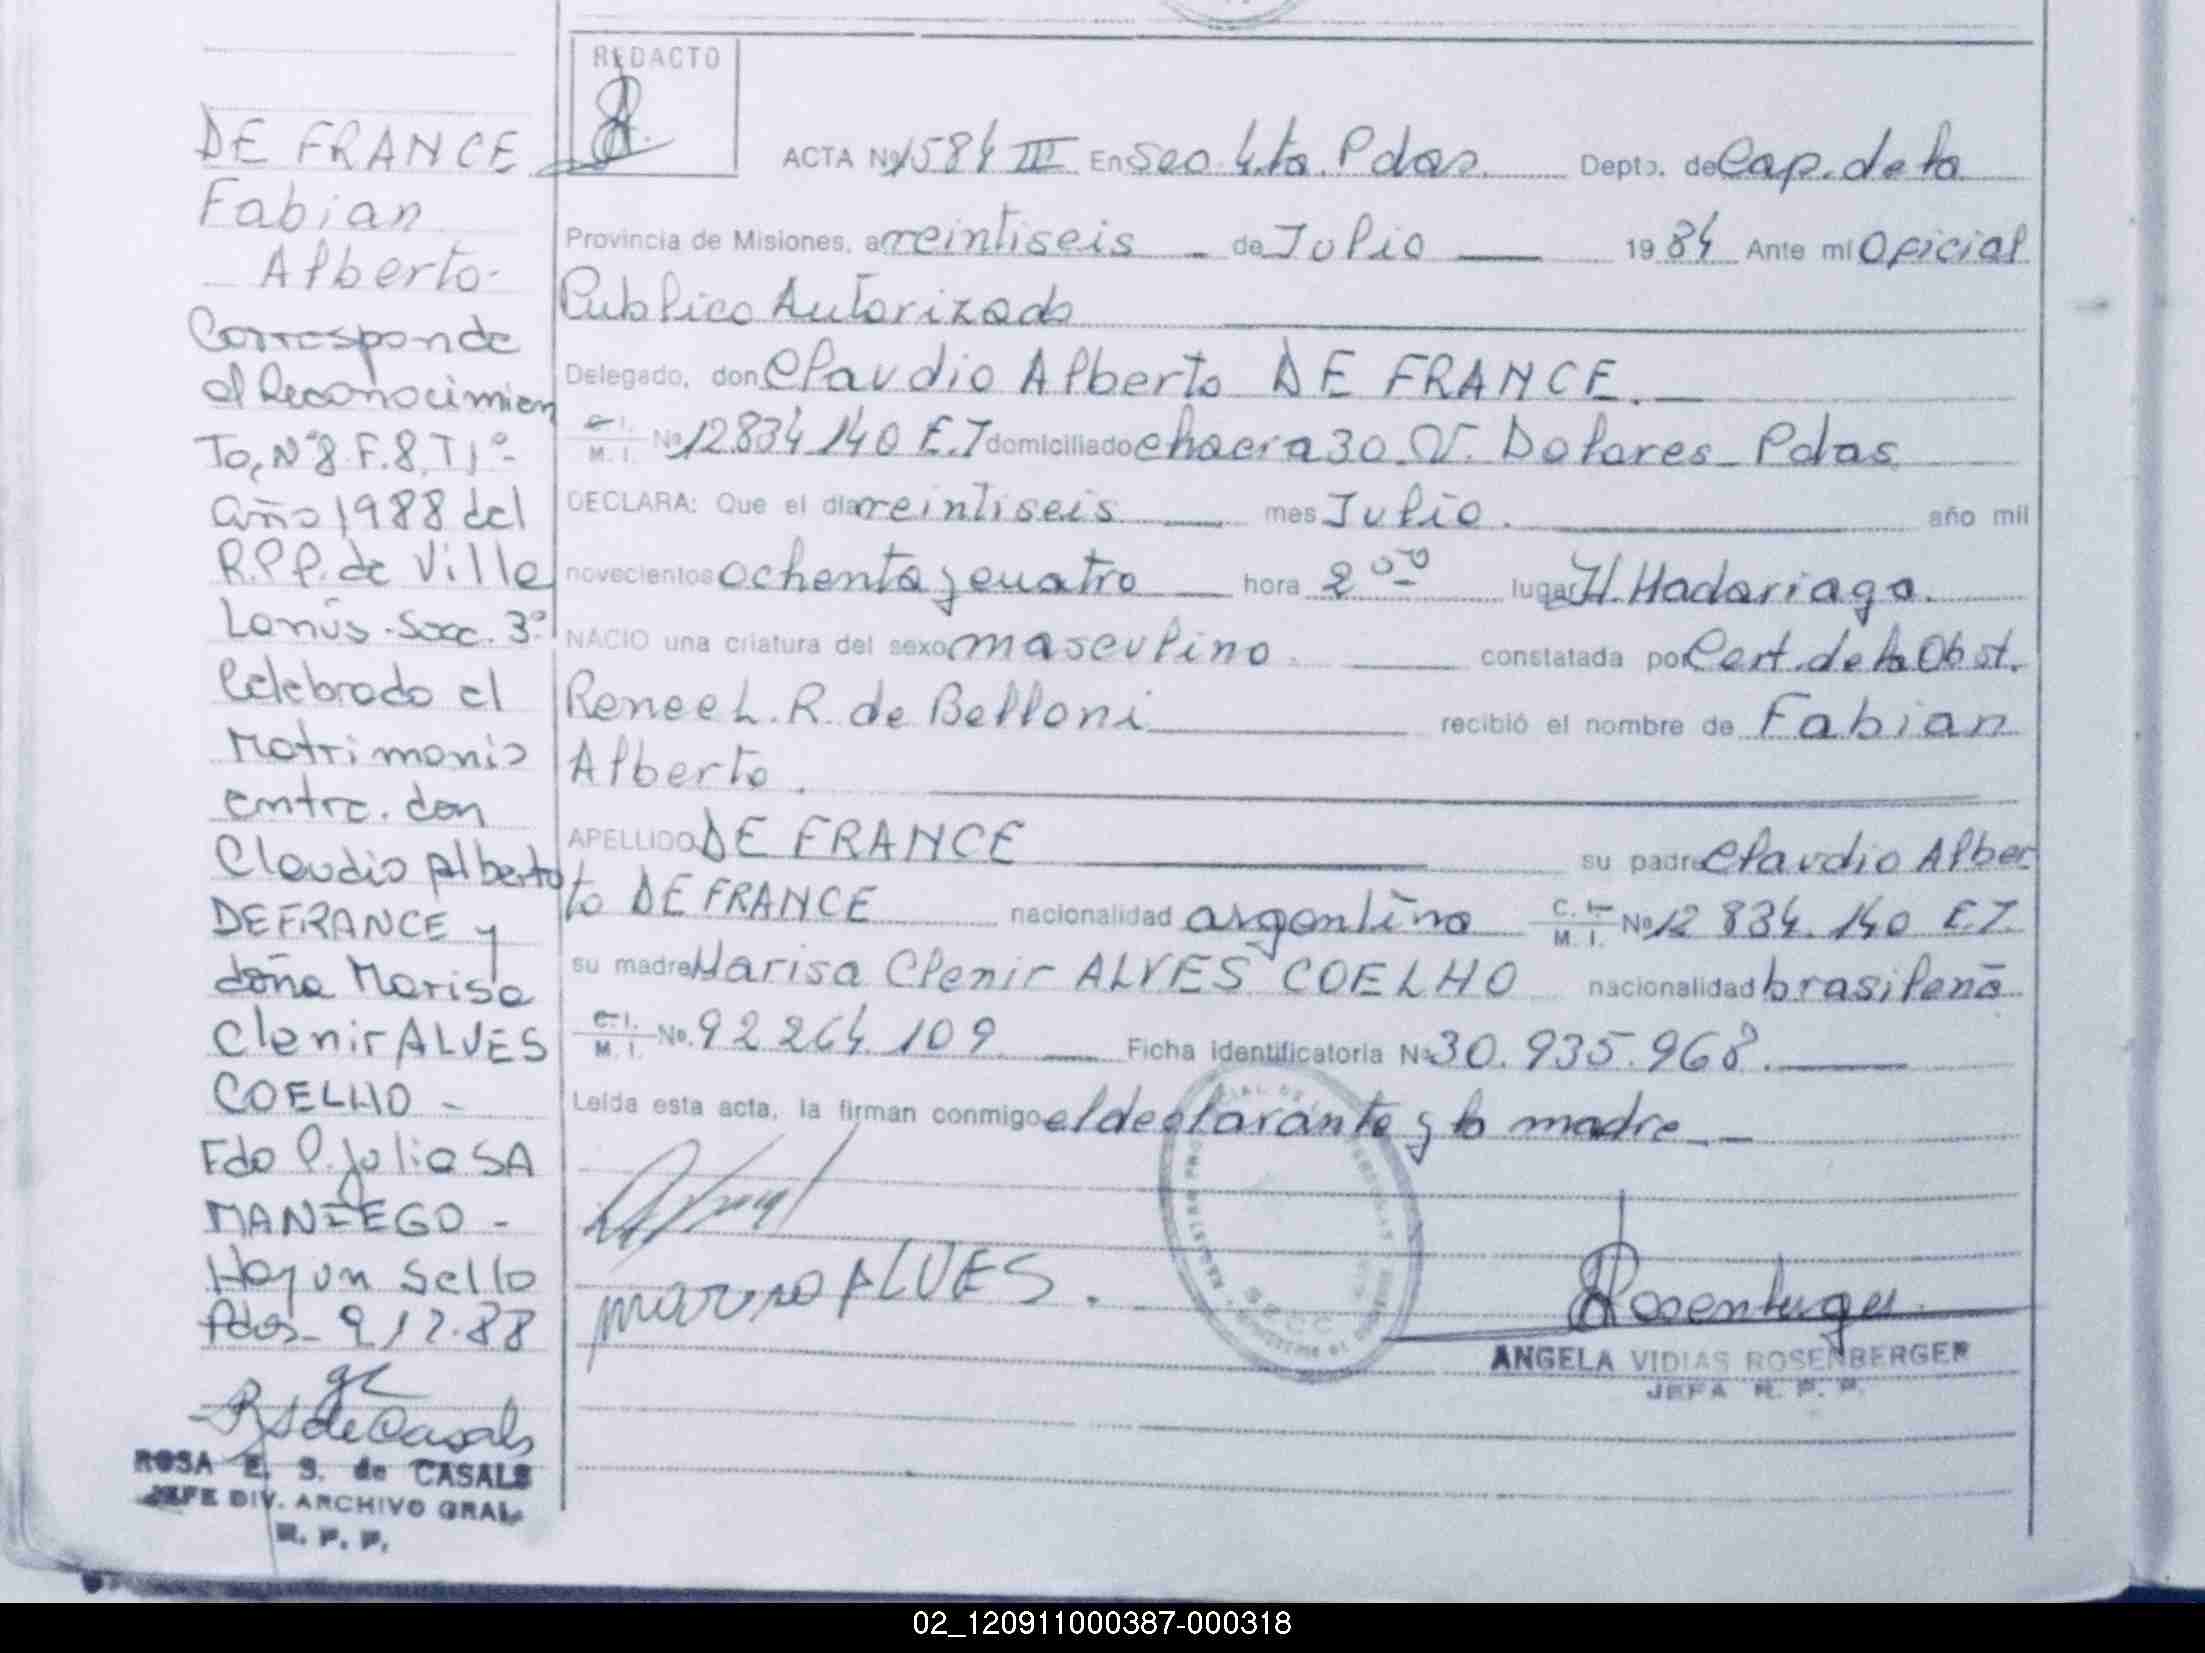 DE FRANCE
Fabian
Alberto-
Corresponde
al Reconocimien
To, Nº 8 F. 8, T 1º-
año 1988 del
R.P.P. de Villa
Lanús - Secc. 3º-
Celebrado el
Matrimonio
entre. don
Claudio Alberto
DE FRANCE y
doña Marisa
Clenir ALVES
COELHO -
Fdo P. Julia SA
MANIEGO -
Hay un sello
Pdas - 9/12.88
R S de Casals
ROSA E. S. de CASALS
JEFE DIV. ARCHIVO GRAL.
R. P. P.
REDACTO
ACTA Nº 1584 III En Sec 4.ta. Pdas. Depto. de Cap. de la
Provincia de Misiones, a veintiseis - de Julio 1984 Ante mi Oficial
Publico Autorizado
Delegado, don Claudio Alberto DE FRANCE.
C. I. M. I. Nº 12.834.140 E.T domiciliado chacra 30. V. Dolores - Pdas
DECLARA: Que el día veintiseis mes Julio. año mil
novecientos ochenta y cuatro hora 2 00 lugar H. Madariaga.
NACIO una criatura del sexo masculino. constatada por Cert. de la Obst.
Renee L. R. de Belloni recibió el nombre de Fabian
Alberto.
APELLIDO DE FRANCE su padre Claudio Alber
to DE FRANCE nacionalidad argentina C. I. M. I. Nº 12 834. 140 E.T.
su madre Marisa Clenir ALVES COELHO nacionalidad brasileña
C. I. M. I. No. 92 264. 109 Ficha identificatoria Nº 30. 935. 968.
Leída esta acta, la firman conmigo el declarante y la madre -
ALVES.
Rosenberger
ANGELA VIDIAS ROSENBERGER
JEFA R. P. P.
02_120911000387-000318